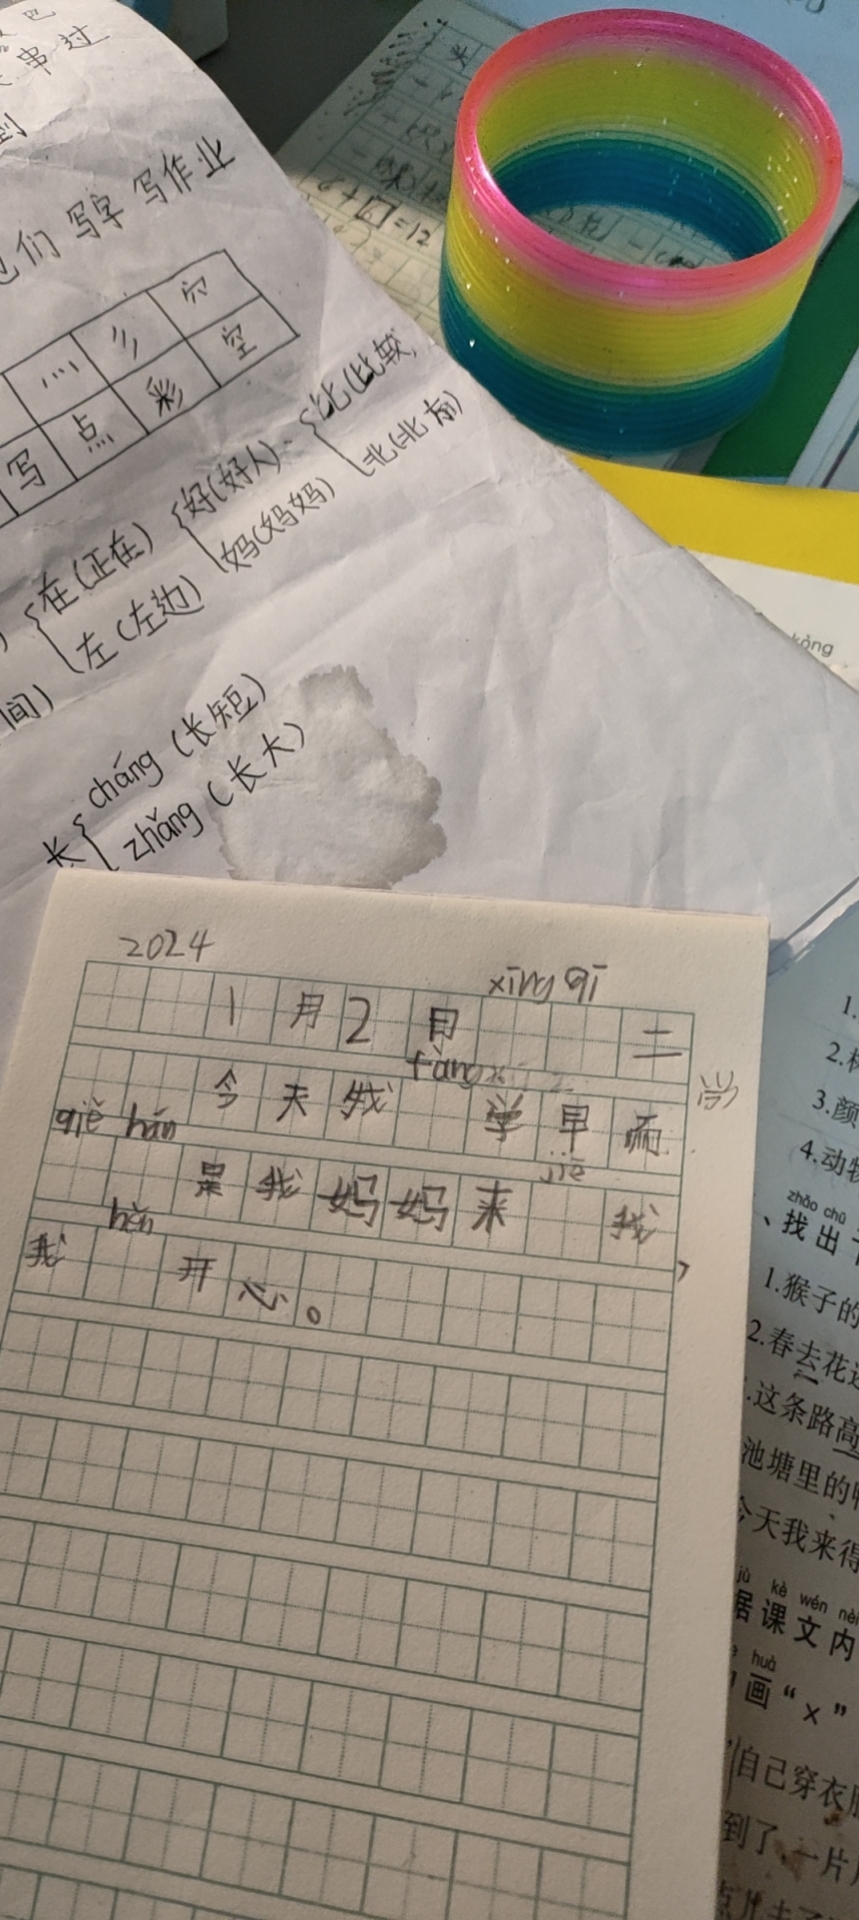 串过
到
们 写字 写作业
灬 彡 穴
写 点 彩 空
比(比较)
北(北方)
好(好人)
妈(妈妈)
在(正在)
左(左边)
间)
长 cháng (长短)
zhǎng (长大)
6+6=12
kǒng
2024
xīng qī
1月2日 二
fàng
今天我 学早而
qiě hán
jiē
是我妈妈来 我,
hěn
我 开心。
1.
2.
3.颜
4.动物
zhǎo chū
、找出
1.猴子的
2.春去花
这条路高
池塘里的
今天我来得
jù kè wén nèi
据课文内
huà
画“×”
自己穿衣服
到了一片